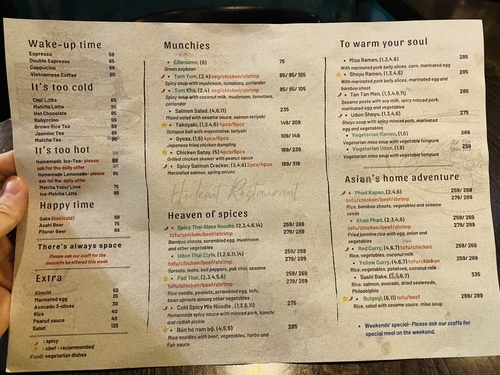 Wake-up time
Espresso 50
Double Espresso 65
Cappuccino
Vietnamese Coffee
It's too cold
Chai Latte
Matcha Latte
Hot Chocolate
Babyccino
Brown Rice Tea
Jasmine Tea
Matcha Tea
It's too hot
Homemade Ice-Tea- please
ask for the daily offer
Homemade Lemonade- please
ask for the daily offer
Matcha Yudzu/ Lime 75
Ice-Matcha Latte
Happy time
Sake (hot/cold)
Asahi Beer
Pilsner Beer
There's always space
Please ask our staff for the
desserts be offered this week
Extra
Kimchi 50
Marinated egg 35
Avocado 3-slices
Rice 40
Peanut sauce 40
Salad 125
: spicy
: chef - recommended
Food: vegetarian dishes
Munchies
Edamame, (6) 75
Green soybean
Tom Yum, (2,4) veg/chicken/shrimp 85/ 95/ 105
Spicy soup with mushroom, tomatoes, coriander
Tom Kha, (2,4) veg/chicken/shrimp 85/ 95/ 105
Spicy soup with coconut milk, mushroom, tomatoes,
coriander
Salmon Salad, (4,6,11) 235
Mixed salad with sesame sauce, salmon teriyaki
Takoyaki, (1,3,4,6) 149/ 209
Octopus ball with mayonaise, teriyaki
Gyoza, (1,6) 109/ 149
Japanese fried chicken dumpling
Chicken Satay, (5) 109/ 239
Grilled chicken skewer with peanut sauce
Spicy Salmon Cracker, (1,3,4,6) 119/ 169
Marinated salmon, spring onions
Hidden Restaurant
Heaven of spices
Spicy Thai Glass Noodle, (2,3,4,6,14) 259/ 269
tofu/chicken/beef/shrimp 279/ 289
Bamboo shoots, scrambled egg, mushroom
and other vegetables
Udon Thai Style, (1,2,6,11) 259/ 269
tofu/chicken/beef/shrimp 279/ 289
Sprouts, leeks, bell peppers, pak choi, sesame
Pad Thai, (2,3,4,5,6) 259/ 269
tofu/chicken/beef/shrimp 279/ 289
Rice noodle, peanuts, scrambled egg, tofu,
bean sprouts among other vegetables
Cold Spicy Mix Noodle, (1,3,5,6,11) 275
Homemade spicy sauce with minced pork, kimchi
and radish pickle
Bún bò nam bộ, (4,5,6) 285
Rice noodles with beef, vegetables, herbs and
fish sauce
To warm your soul
Miso Ramen, (1,3,4,6) 285
With marinated pork belly slices, corn, marinated egg
Shoyu Ramen, (1,3,4,6) 285
With marinated pork belly slices, marinated egg and
bamboo shoot
Tan Tan Men, (1,3,4,6,11) 285
Sesame paste with soy milk, spicy minced pork,
marinated egg and vegetables
Udon Shoyu, (1,3,4,6) 275
Shoyu soup with slice minced pork, marinated
egg and vegetables
Vegetarian Ramen, (1,6) 269
Vegetarian miso soup with vegetable tempura
Vegetarian Udon, (1,6) 259
Vegetarian miso soup with vegetable tempura
Asian's home adventure
Phad Kapao, (2,4,6) 259/ 269
tofu/chicken/beef/shrimp 279/ 289
Rice, bamboo shoots, vegetables and sesame
seeds
Khao Phad, (2,3,4,6) 259/ 269
tofu/chicken/beef/shrimp 279/ 289
Fried jasmine rice with egg, onion and
vegetables
Red Curry, (4,6,7) tofu/chicken 259/ 269
Rice, vegetables, coconut milk
Yellow Curry, (4,6,7) tofu/chicken 259/ 269
Rice, vegetables, potatoes, coconut milk
Sushi Bake, 335
Rice, salmon, avocado, dried seaweeds,
Philadelphia
Bulgogi, (6,11) tofu/beef 259/ 289
Rice, salad with sesame sauce, miso soup
Weekends' special- Please ask our staffs for
special meal on the weekend.